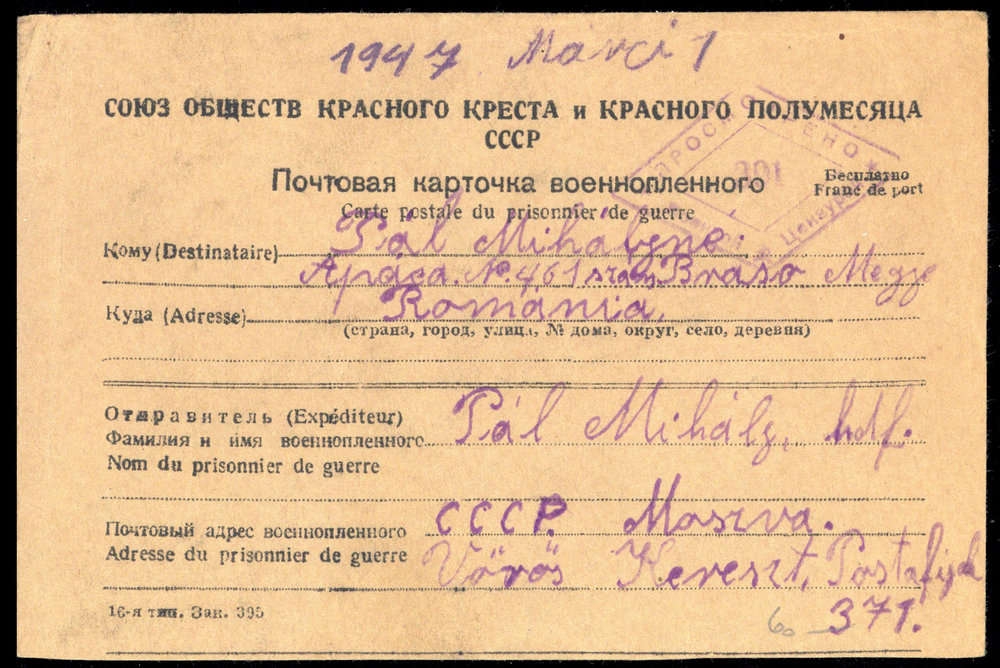 1947 Marci 1
СОЮЗ ОБЩЕСТВ КРАСНОГО КРЕСТА и КРАСНОГО ПОЛУМЕСЯЦА
СССР
Почтовая карточка военнопленного
Бесплатно
Franc de port
Carte postale du prisonnier de guerre
Кому (Destinataire) Pál Mihályne.
Apáca. No. 461 szám Braso Megye
Куда (Adresse) Románia.
(страна, город, улица, № дома, округ, село, деревня)
Отправитель (Expéditeur)
Фамилия и имя военнопленного Pál Mihály, hdf.
Nom du prisonnier de guerre
Почтовый адрес военнопленного СССР. Moszva.
Adresse du prisonnier de guerre Vörös Kereszt, Postafijok
371.
16-я тип. Зак. 395